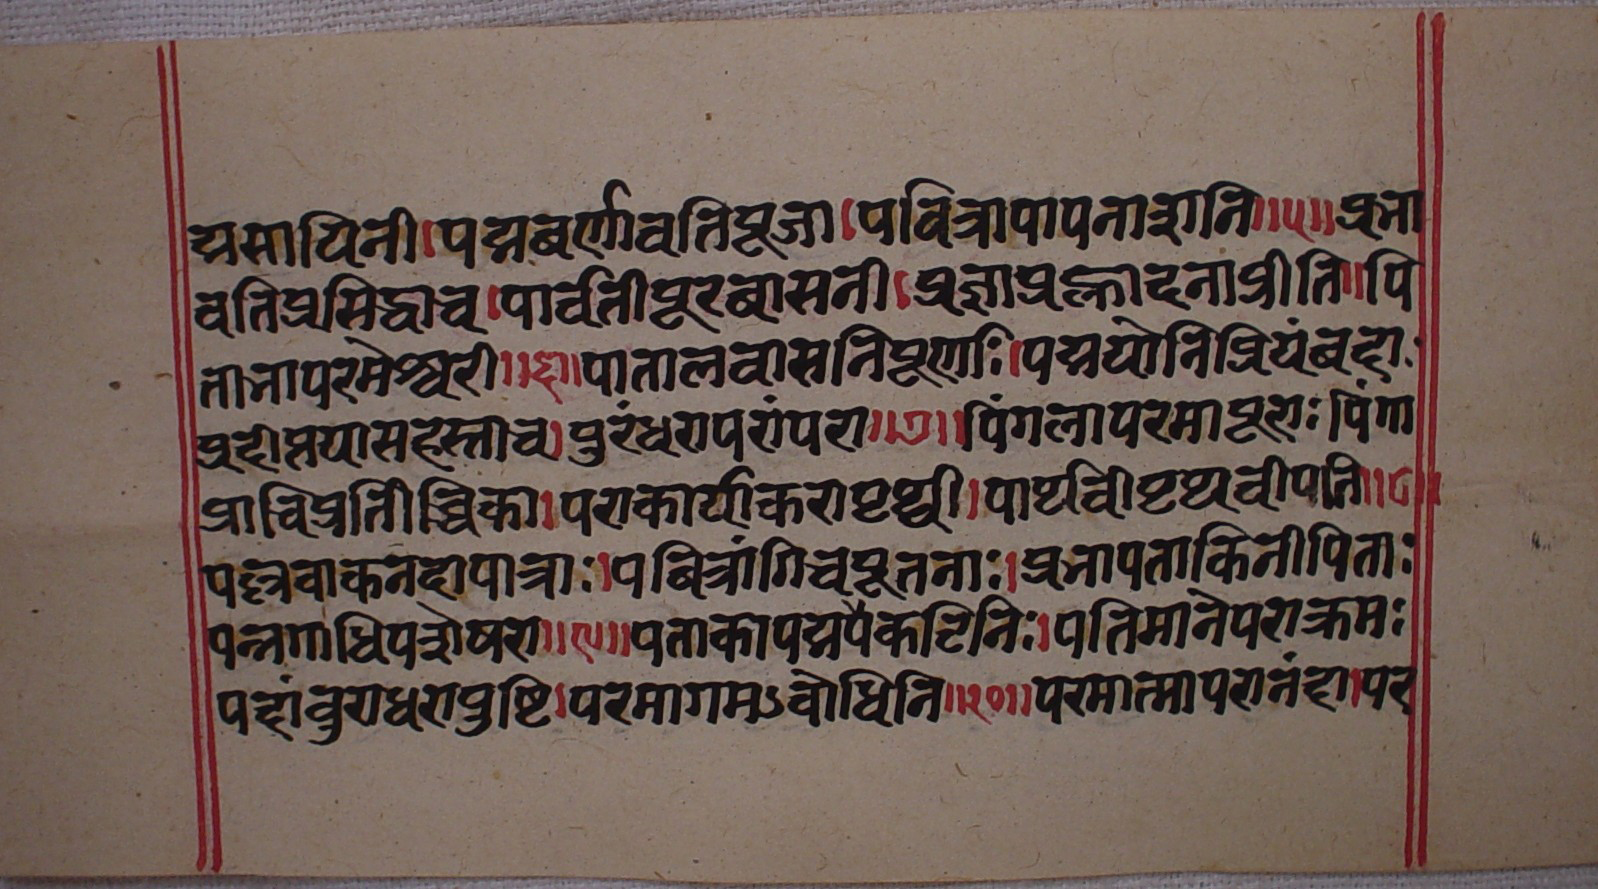 द्मसायिनी।पद्मबर्णावतिपूजा।पवित्रापापनाशनि॥५॥प्रभा
वतिप्रसिद्धाच।पार्वतीपूरबासनी।प्रज्ञाप्रह्लादनाप्रीति॥पि
ताभापरमेश्वरी॥६॥पातालवासनिपूर्णाः।पद्मयोनिप्रियंबदाः
प्रदीप्तयासहस्ताच।पुरंधरापरांपरा॥७॥पिंगलापरमापूराः पिंगा
प्राचिप्रतीच्चिका।पराकार्याकरापृथ्वी।पार्थवीपृथवीपति॥८॥
पल्लवाकनदापात्राः।पबित्रांगिचपूतनाः।प्रभापताकिनीपिताः
पन्नगाधिपशेषरा॥९॥पताकापद्मपैकटिनिः।पतिमानेपराक्रमः
पदांवुराधरापुष्टि।परमागमऽवोधिनि॥१०॥परमात्मापरानंदा।पर